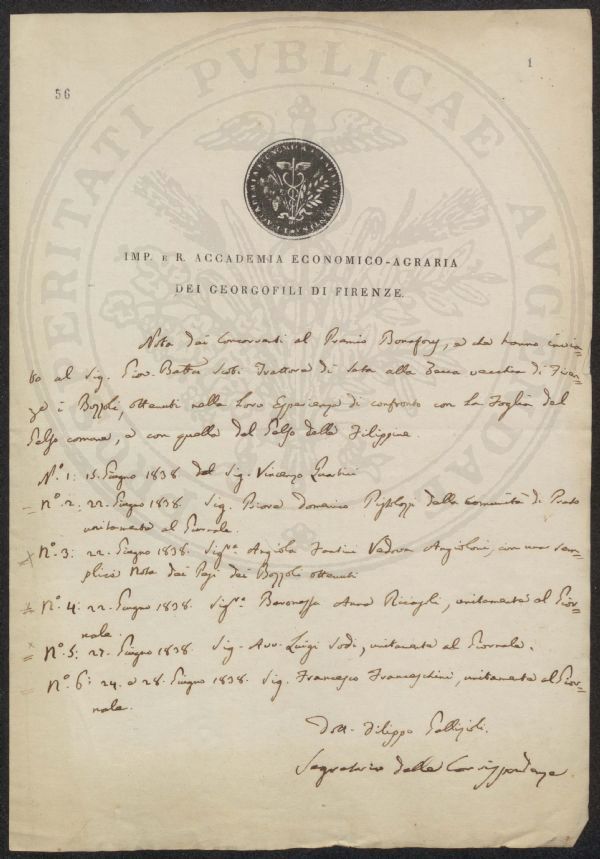 1
56
PROSPERITATI PVBLICAE AVGENDAE
IMP. E R. ACCADEMIA ECONOMICO-AGRARIA
DEI GEORGOFILI DI FIRENZE.
Nota dei Concorrenti al Premio Bonafous, e che hanno invia=
to al Sig. Giov. Batta Scoti Trattore di Seta alla Zecca vecchia di Firen=
ze i Bozzoli, ottenuti nelle Loro Esperienze di confronto con La Foglia del
Gelso comune, e con quella del Gelso delle Filippine.
N.º 1: 15. Giugno 1838. del Sig. Vincenzo
= N.º 2: 22. Giugno 1838. Sig. Domenico della Comunità di Prato
unitamente al Giornale.
N.º 3: 22. Giugno 1838. Sigra Angiola Fantini Vedova Angioloni, con una sem=
plice Nota dei Pesi dei Bozzoli ottenuti
N.º 4: 22. Giugno 1838. Sigra Baronessa Anna Ricasoli, unitamente al Gior=
nale.
= N.º 5: 27. Giugno 1838. Sig. Avv. Luigi Sodi, unitamente al Giornale.
= N.º 6: 24. e 28. Giugno 1838. Sig. Francesco Franceschini, unitamente al Gior=
nale.
Dott. Filippo Gallizioli.
Segretario delle Corrispondenze